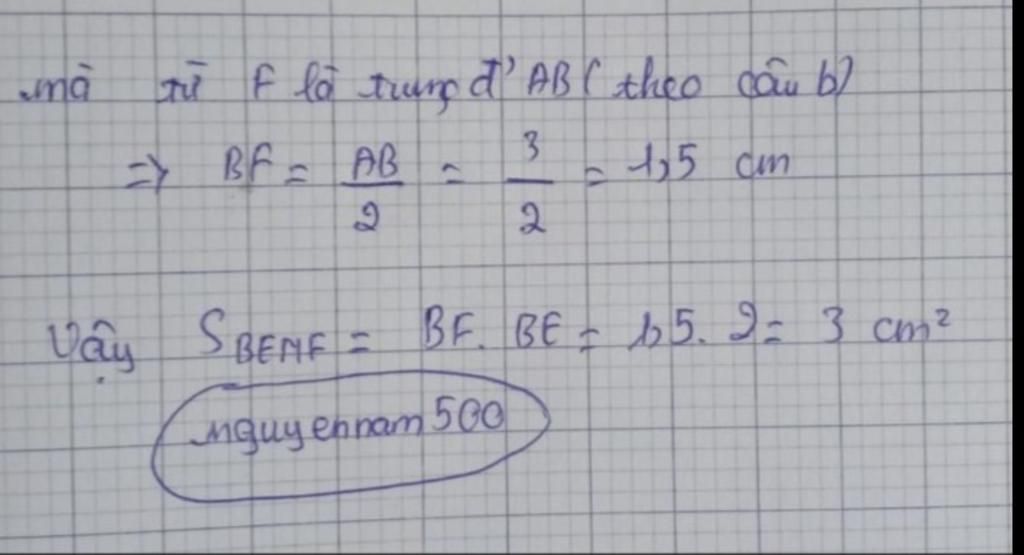 mà từ F là trung đ' AB (theo câu b)
=> BF = AB/2 = 3/2 = 1,5 cm
Vậy S BEMF = BF. BE = 1,5. 2 = 3 cm²
nguyennam500